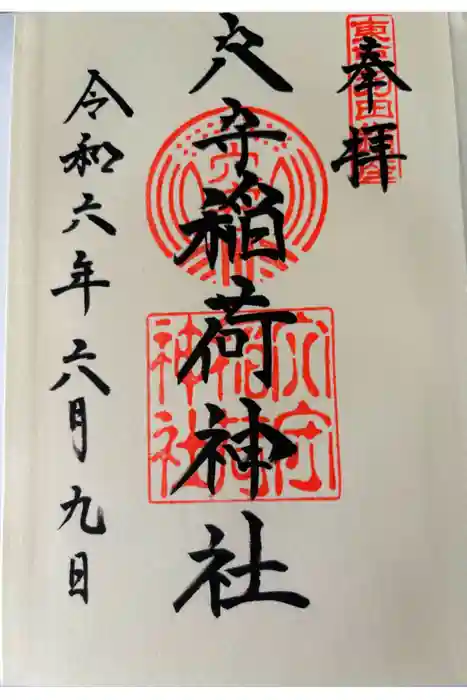 奉拝
穴守稲荷神社
穴守
稲荷
神社
令和六年六月九日